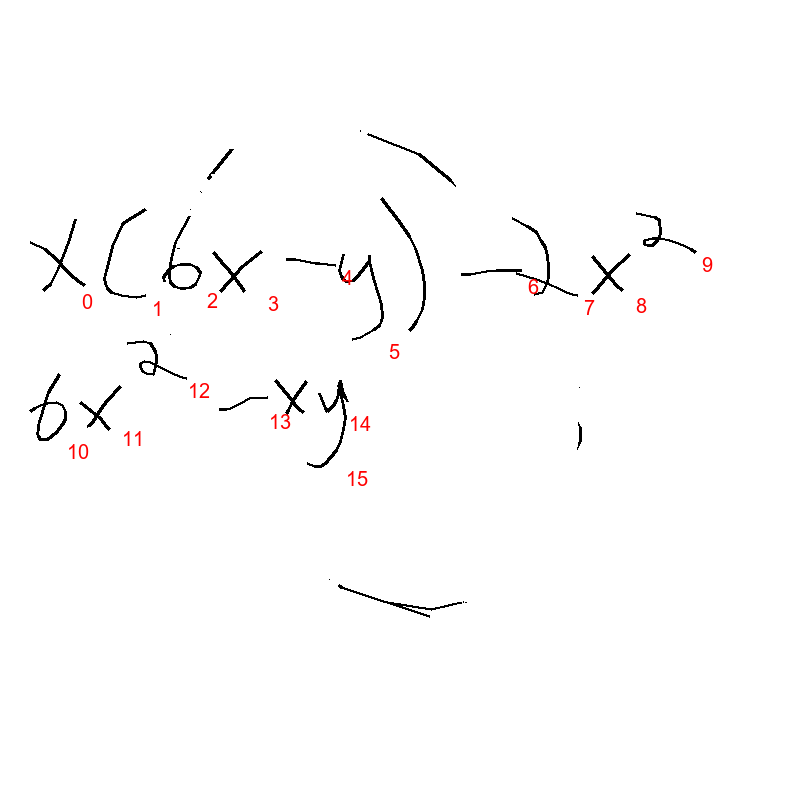 x(6x-y)-2x²
0 1 2 3 4 5 6 7 8 9
6x²-xy
10 11 12 13 14 15